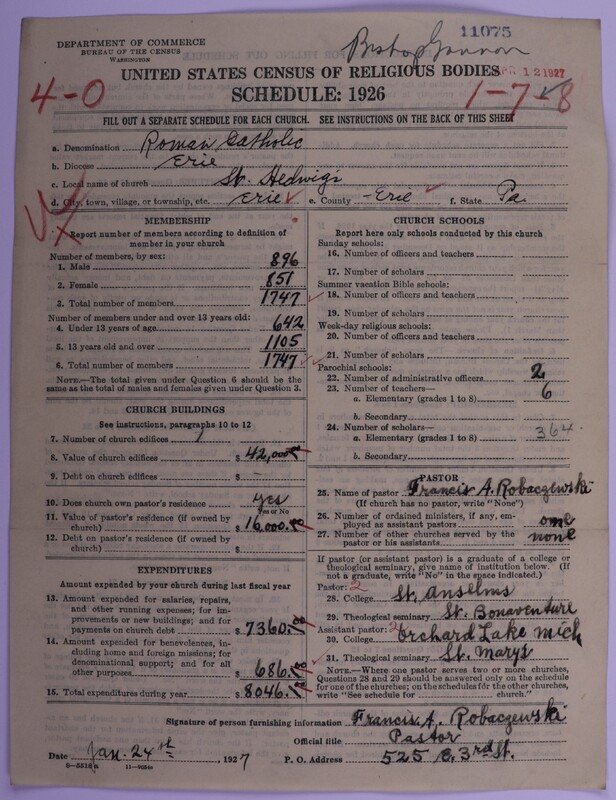 11075
DEPARTMENT OF COMMERCE
BUREAU OF THE CENSUS
WASHINGTON
Bishop Gannon
UNITED STATES CENSUS OF RELIGIOUS BODIES
APR 12 1927
4-0
SCHEDULE: 1926
1-7-8
FILL OUT A SEPARATE SCHEDULE FOR EACH CHURCH. SEE INSTRUCTIONS ON THE BACK OF THIS SHEET
a. Denomination Roman Catholic
b. Diocese Erie
c. Local name of church St. Hedwigs
d. City, town, village, or township, etc. Erie e. County Erie f. State Pa.
MEMBERSHIP
Report number of members according to definition of member in your church
Number of members, by sex:
1. Male 896
2. Female 851
3. Total number of members 1747
Number of members under and over 13 years old:
4. Under 13 years of age 642
5. 13 years old and over 1105
6. Total number of members 1747
NOTE.—The total given under Question 6 should be the same as the total of males and females given under Question 3.
CHURCH BUILDINGS
See instructions, paragraphs 10 to 12
7. Number of church edifices 1
8. Value of church edifices $ 42,000.00
9. Debt on church edifices $ —
10. Does church own pastor's residence yes
Yes or No
11. Value of pastor's residence (if owned by church) $ 16,000.00
12. Debt on pastor's residence (if owned by church) $
EXPENDITURES
Amount expended by your church during last fiscal year
13. Amount expended for salaries, repairs, and other running expenses; for improvements or new buildings; and for payments on church debt $ 7360.00
14. Amount expended for benevolences, including home and foreign missions; for denominational support; and for all other purposes $ 686.00
15. Total expenditures during year $ 8046.00
CHURCH SCHOOLS
Report here only schools conducted by this church
Sunday schools:
16. Number of officers and teachers
17. Number of scholars
Summer vacation Bible schools:
18. Number of officers and teachers
19. Number of scholars
Week-day religious schools:
20. Number of officers and teachers
21. Number of scholars
Parochial schools:
22. Number of administrative officers 2
23. Number of teachers—
a. Elementary (grades 1 to 8) 6
b. Secondary
24. Number of scholars—
a. Elementary (grades 1 to 8) 364
b. Secondary
PASTOR
25. Name of pastor Francis A. Robaczewski
(If church has no pastor, write "None")
26. Number of ordained ministers, if any, employed as assistant pastors one
27. Number of other churches served by the pastor or his assistants none
If pastor (or assistant pastor) is a graduate of a college or theological seminary, give name of institution below. (If not a graduate, write "No" in the space indicated.)
Pastor: 2
28. College St. Anselms
29. Theological seminary St. Bonaventure
Assistant pastor: 2
30. College Orchard Lake Mich
31. Theological seminary St. Marys
NOTE.—Where one pastor serves two or more churches, Questions 28 and 29 should be answered only on the schedule for one of the churches; on the schedules for the other churches, write "See schedule for ............ church."
Signature of person furnishing information Francis A. Robaczewski
Official title Pastor
Date Jan. 24th, 1927 P. O. Address 525 E. 3rd St.
8—5518a